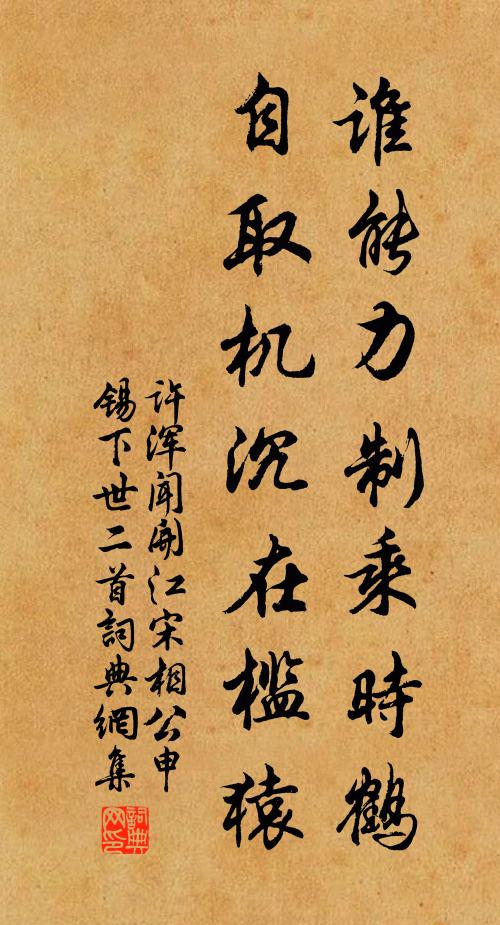 谁能力制乘時鹤
自取机沉在槛猿
许浑闻開江宋相公申
锡下世二首詞典網集
詞典网印